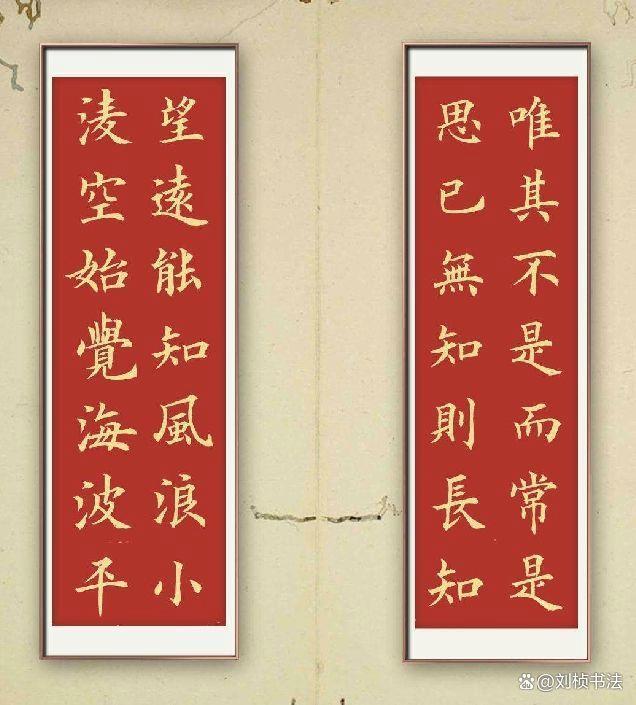 唯其不是而常是
思已無知則長知
望遠能知風浪小
淩空始覺海波平
@刘桢书法